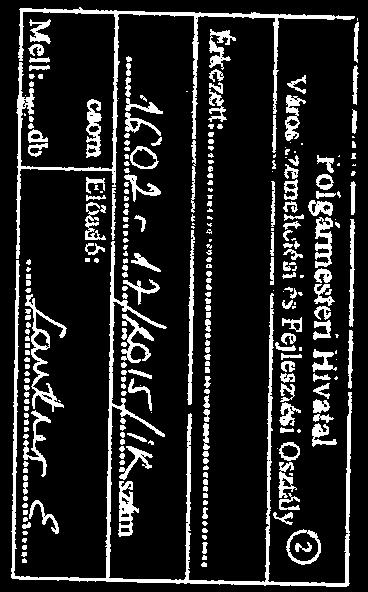 Polgármesteri Hivatal
Városüzemeltetési és Fejlesztési Osztály 2
Érkezett:
1602-17/2015/IK szám
Mell: db csom Előadó: Lautner E